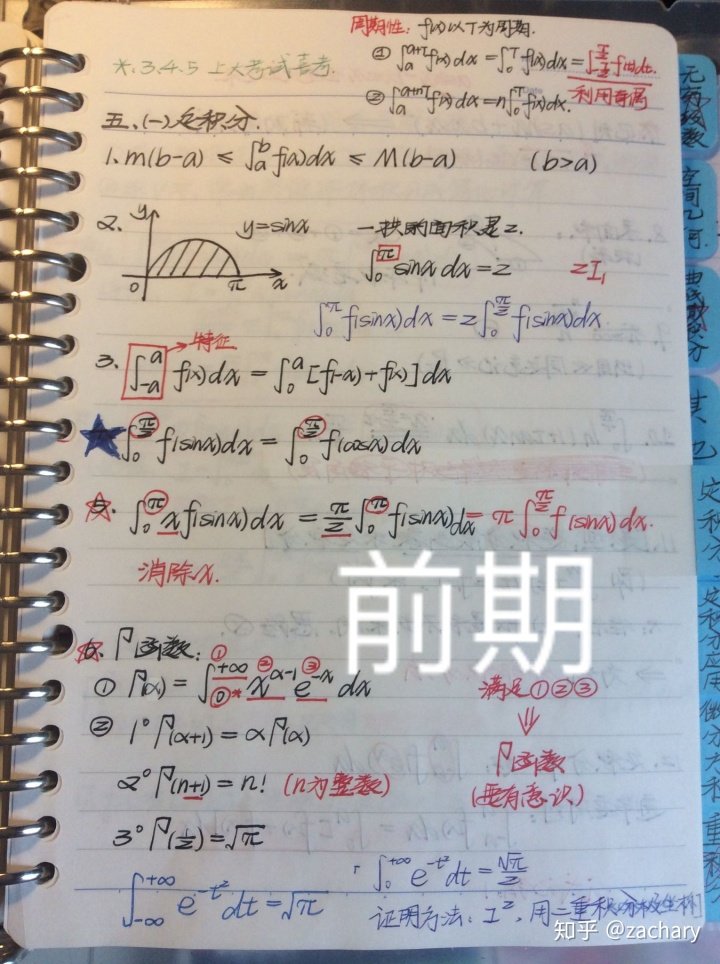 周期性: f(x)以T为周期.
① ∫_a^{a+T} f(x)dx = ∫_0^T f(x)dx = ∫_{-T/2}^{T/2} f(x)dx.
② ∫_a^{a+nT} f(x)dx = n∫_0^T f(x)dx. 利用奇偶
*.3.4.5 上大考试喜考.
五、(一)定积分.
1. m(b-a) ≤ ∫_a^b f(x)dx ≤ M(b-a) (b>a)
2. y y=sinx 一拱的面积是2.
0 π x ∫_0^π sinx dx = 2 2I₁
∫_0^π f(sinx)dx = 2∫_0^{π/2} f(sinx)dx
特征
3. ∫_{-a}^a f(x)dx = ∫_0^a [f(-x)+f(x)]dx
∫_0^{π/2} f(sinx)dx = ∫_0^{π/2} f(cosx)dx
5. ∫_0^π xf(sinx)dx = π/2 ∫_0^π f(sinx)dx = π∫_0^{π/2} f(sinx)dx.
消除x.
前期
6. Γ函数:
① Γ(α) = ∫_0^{+∞} x^{α-1} e^{-x} dx ① ② ③ 满足①②③
② 1° Γ(α+1) = αΓ(α) ⇓
2° Γ(n+1) = n! (n为整数) Γ函数
(要有意识)
3° Γ(1/2) = √π
∫_{-∞}^{+∞} e^{-t²}dt = √π ∫_0^{+∞} e^{-t²}dt = √π/2
证明方法: I², 用二重积分极坐标
无穷级数
空间几何
曲线积分
其他
定积分
定积分应用
知乎 @zachary